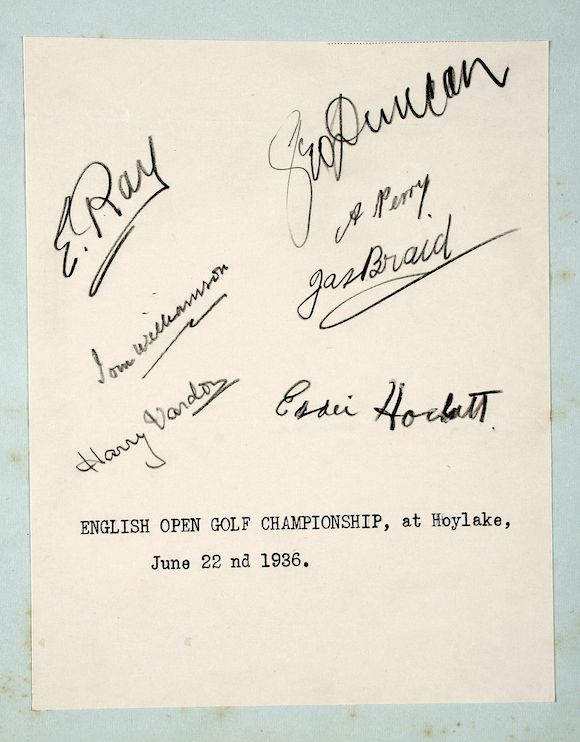 Geo Duncan
E. Ray
A Perry
Jas Braid
Tom Williamson
Harry Vardon
Eddie
ENGLISH OPEN GOLF CHAMPIONSHIP, at Hoylake,
June 22 nd 1936.